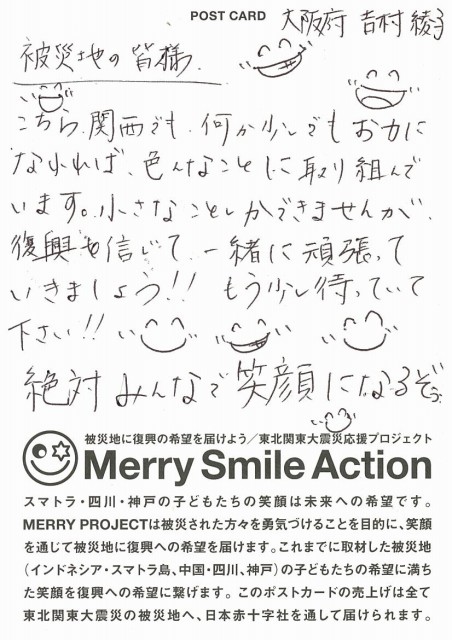 POST CARD
大阪府 吉村 綾子
被災地の皆様
こちら関西でも、何か少しでもお力に
なれれば、色んなことに取り組んで
います。小さなことしかできませんが、
復興を信じて、一緒に頑張って
いきましょう!! もう少し待っていて
下さい!!
絶対みんなで笑顔になるぞ。
被災地に復興の希望を届けよう/東北関東大震災応援プロジェクト
Merry Smile Action
スマトラ・四川・神戸の子どもたちの笑顔は未来への希望です。
MERRY PROJECTは被災された方々を勇気づけることを目的に、笑顔
を通じて被災地に復興への希望を届けます。これまでに取材した被災地
(インドネシア・スマトラ島、中国・四川、神戸)の子どもたちの希望に満ち
た笑顔を復興への希望に繋げます。このポストカードの売上げは全て
東北関東大震災の被災地へ、日本赤十字社を通して届けられます。